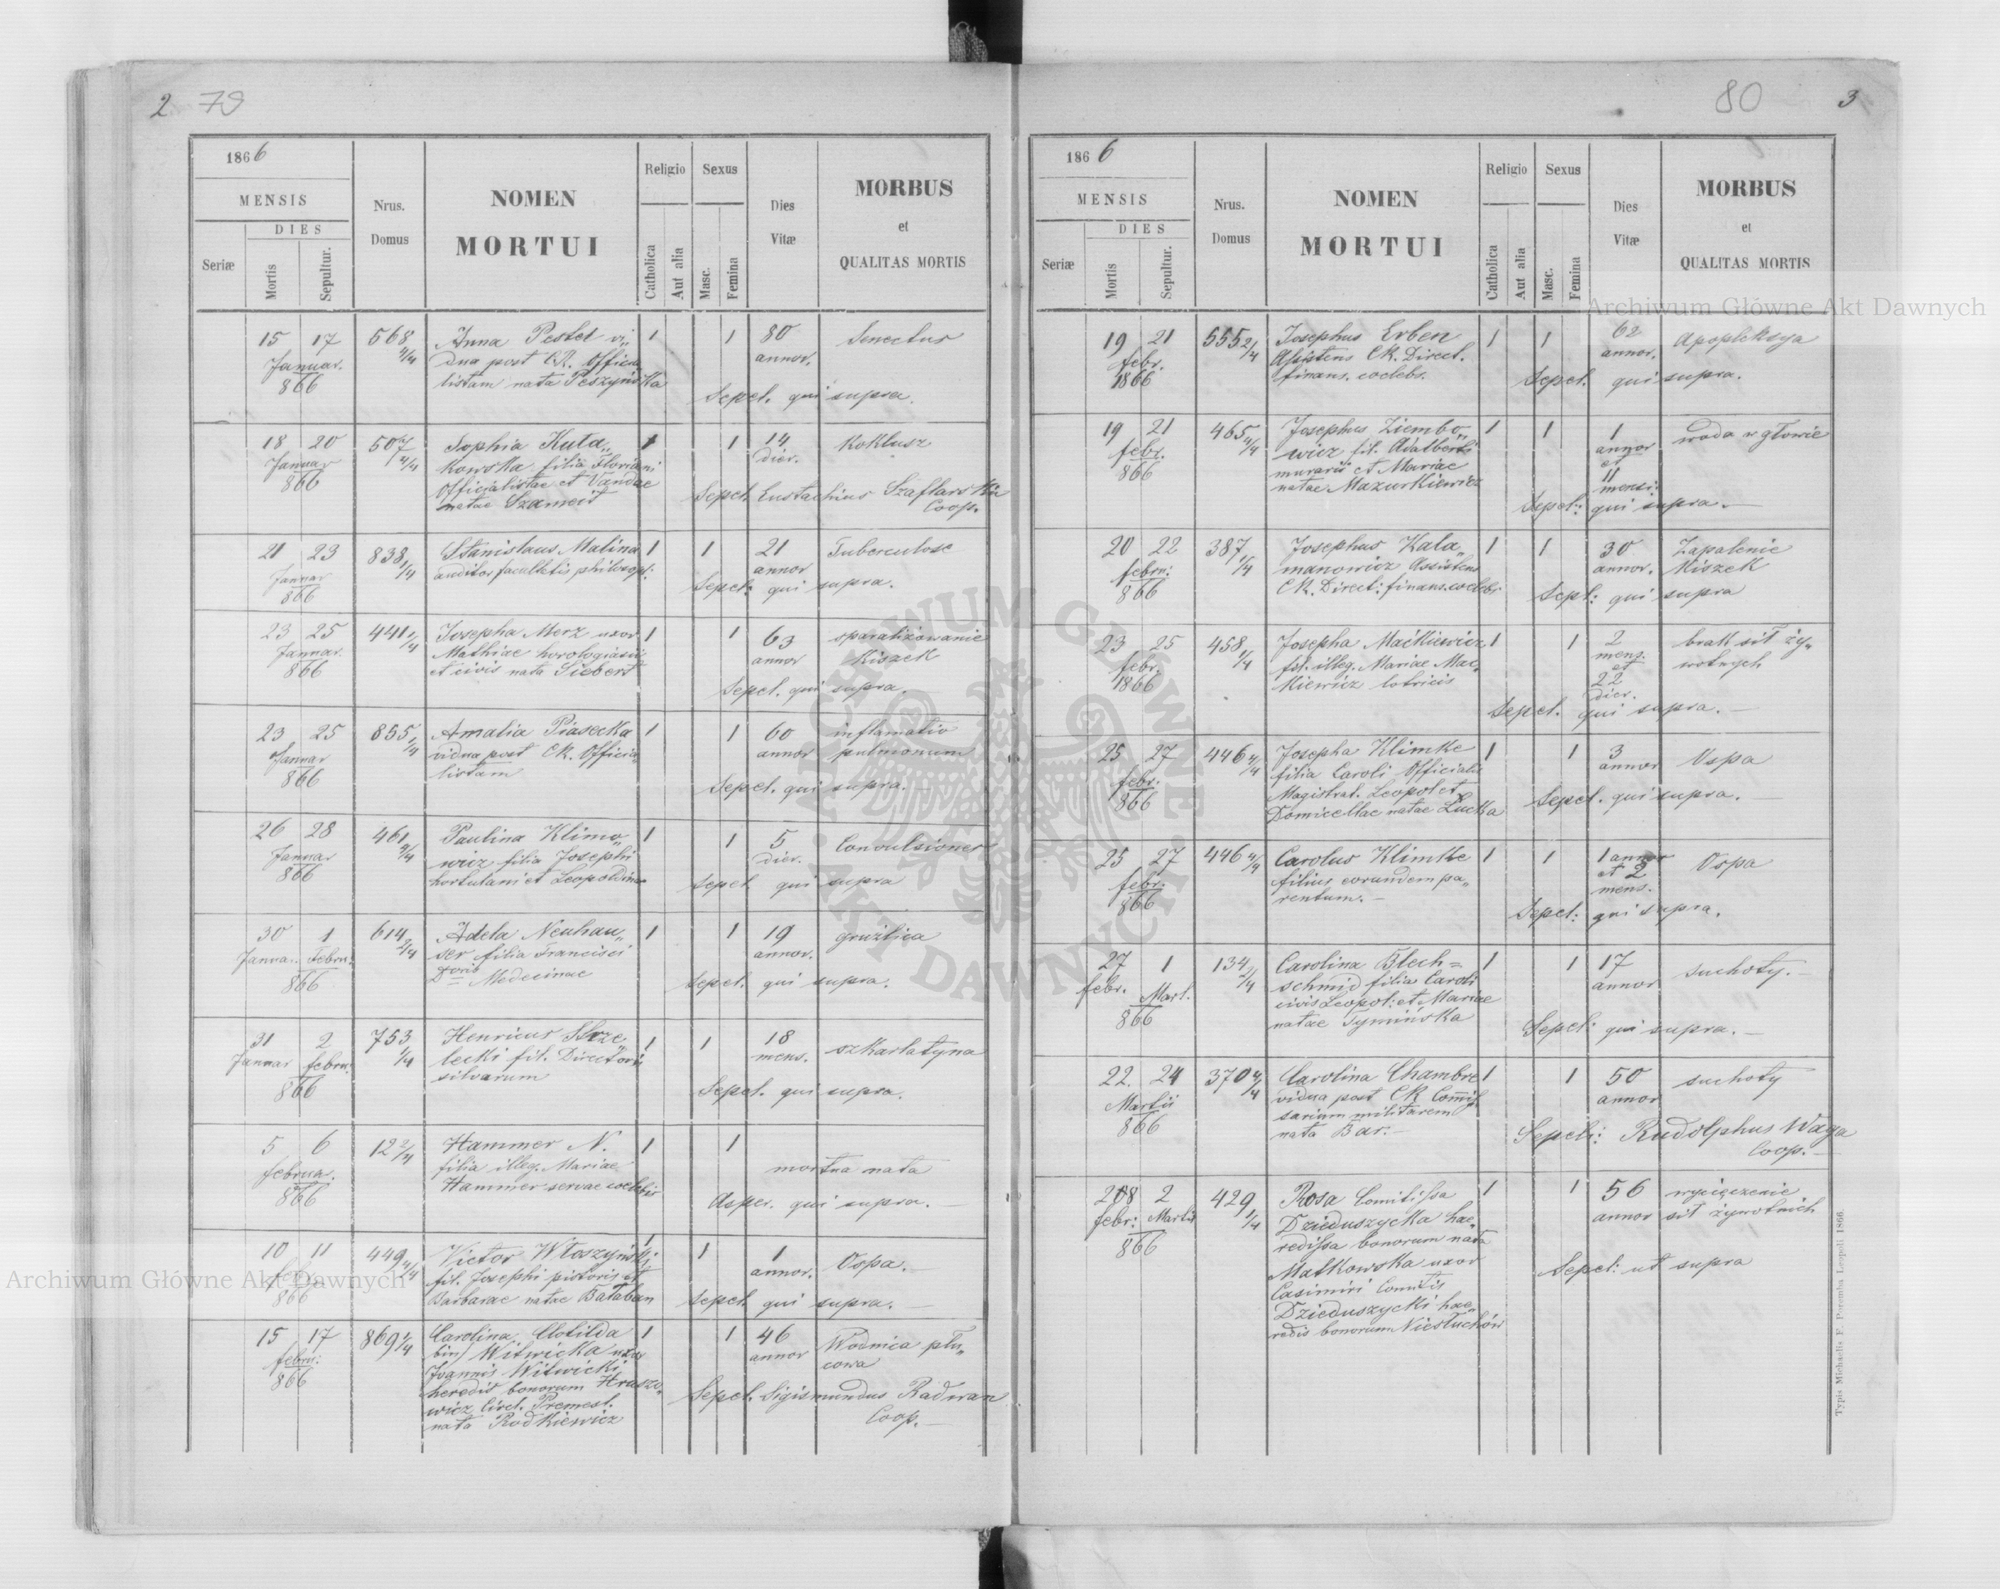 2 79
1866
MENSIS
DIES
Seriæ
Mortis
Sepultur.
Nrus.
Domus
NOMEN
MORTUI
Religio
Catholica
Aut alia
Sexus
Masc.
Femina
Dies
Vitæ
MORBUS
et
QUALITAS MORTIS
15 17 568 4/4 Anna Pestel vi„ 1 1 80 Senectus
Januar. dua post CK. Officia annor.
866 listam nata Peszyńska Sepel. qui supra.
18 20 507 4/4 Sophia Kuta„ 1 1 14 Koklusz
Januar kowska filia Floriani dier.
866 Officialistae et Vandae Sepel. Eustachius Szaflarski
natae Szameit Coop.
21 23 838 1/4 Stanislaus Malina 1 1 21 Tuberculose
Januar auditor facultetis philosoph: annor
866 Sepel: qui supra.
23 25 441 1/4 Josepha Merz uxor 1 1 63 sparaliżowanie
Januar. Mathiae horologiarii annor kiszek
866 et civis nata Siebert Sepel. qui supra.
23 25 855 1/4 Amalia Piasecka 1 1 60 inflamatio
Januar vidua post CK. Officia annor pulmonum
866 listam Sepel. qui supra. —
26 28 461 4/4 Paulina Klimo„ 1 1 5 Convulsiones
Januar wicz filia Josephi dier.
866 hortulani et Leopoldinae Sepel. qui supra
30 1 614 2/4 Adela Neuhau„ 1 1 19 gruźlica
Januar. Febru: ser filia Francisci annor.
866 Doris Medecinae Sepel. qui supra.
31 2 753 1/4 Henricus Strze„ 1 1 18 szkarlatyna
Januar febru: lecki fil. Directoris mens.
866 silvarum Sepel. qui supra.
5 6 12 2/4 Hammer N. 1 1
februa. filia illeg. Mariae mortua nata
866 Hammer servae coelebis Asper. qui supra. —
10 11 449 4/4 Victor Włoszyński 1 1 1 Ospa. —
866 fil. Josephi pistoris et annor.
Barbarae natae Bałaban Sepel. qui supra. —
15 17 869 1/4 Carolina Clotilda 1 1 46 Wodnica płu„
febru: bin) Witwicka uxor annor cowa
866 Joannis Witwicki
heredis bonorum Hruszo„ Sepel. Sigismundus Radwan
wicz Circl. Premesl. Coop. —
nata Rodkiewicz
80 3
1866
MENSIS
DIES
Seriæ
Mortis
Sepultur.
Nrus.
Domus
NOMEN
MORTUI
Religio
Catholica
Aut alia
Sexus
Masc.
Femina
Dies
Vitæ
MORBUS
et
QUALITAS MORTIS
19 21 555 2/4 Josephus Erben 1 1 62 Apopleksya
febr. Assistens CK. Direct. annor.
1866 finans. coelebs. Sepel. qui supra.
19 21 465 4/4 Josephus Ziembo„ 1 1 1 woda w głowie
febr. wicz fil. Adalberti annor
866 murarii et Mariae et 11
natae Mazurkiewicz mens:
Sepel: qui supra. —
20 22 387 1/4 Josephus Kala„ 1 1 30 Zapalenie
febru: manowicz Assistens annor. Kiszek
866 CK. Direct: finans. coelebs Sepl: qui supra
23 25 458 1/4 Josepha Maćkiewicz 1 1 2 brak sił ży„
febr. fil. illeg. Mariae Mac„ mens. wotnych
1866 kiewicz lotricis et 22
dier.
Sepel. qui supra. —
25 27 446 4/4 Josepha Klimke 1 1 3 Ospa
febr. filia Caroli Officialis annor
866 Magistrat. Leopol et Sepel. qui supra. —
Domicellae natae Łucka
25 27 446 4/4 Carolus Klimke 1 1 1 annor Ospa
febr. filius eorundem pa„ et 2
866 rentum. — mens.
Sepel: qui supra.
27 1 134 2/4 Carolina Blech= 1 1 17 suchoty. —
febr. Mart. schmid filia Caroli annor
866 civis Leopol: et Mariae
natae Tymińska Sepel: qui supra. —
22. 24 370 4/4 Carolina Chambre 1 1 50 suchoty
Martii vidua post CK Comis annor
866 sarium militarem
nata Bar. — Sepeli: Rudolphus Waga
Coop. —
28 2 429 1/4 Rosa Comitissa 1 1 56 wycięczenie
febr: Martii Dzieduszycka hae„ annor sił żywotnich
866 redissa bonorum nata
Małkowska uxor Sepel: ut supra
Casimiri Comitis
Dzieduszycki hae„
redis bonorum Niesłuchów
Typis Michaelis F. Poremba Leopoli 1866.
Archiwum Główne Akt Dawnych
Archiwum Główne Akt Dawnych
ARCHIWUM GŁÓWNE · AKT DAWNYCH ·